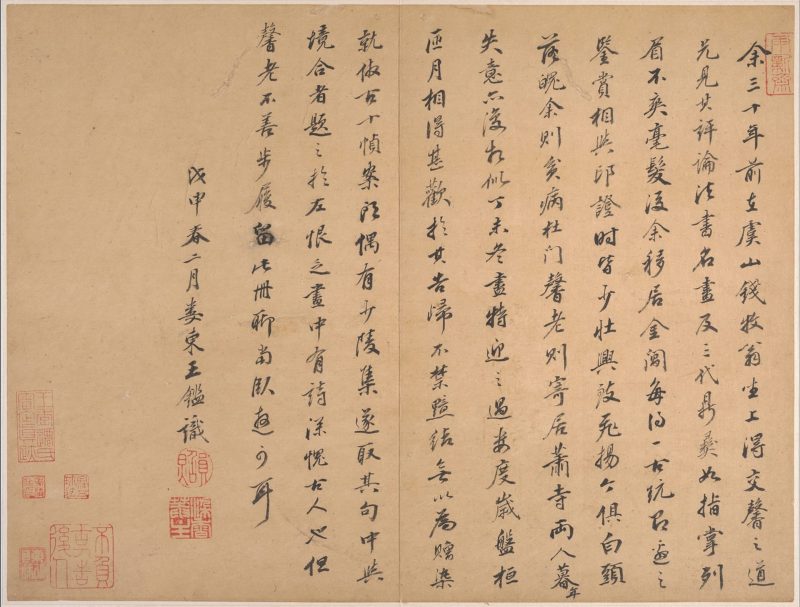 余三十年前在虞山錢牧翁坐上得交馨之道
兄見其評論法書名畫及三代鼎彝如指掌列
眉不爽毫髮後余移居金閶每得一古玩之
鑒賞相與印證時皆少壯興致飛揚今俱白頭
落魄余則貧病杜門馨老則寄居蕭寺兩人暮年
失意亦復相似丁未冬盡特迎之過婁度歲盤桓
匝月相得甚歡於其告歸不禁黯結無以為贈染
就倣古十幀案頭偶有少陵集遂取其句中與
境合者題之於左恨乏畫中有詩深愧古人也但
馨老不善步履留此冊聊當臥遊可耳
戊申春二月婁東王鑑識